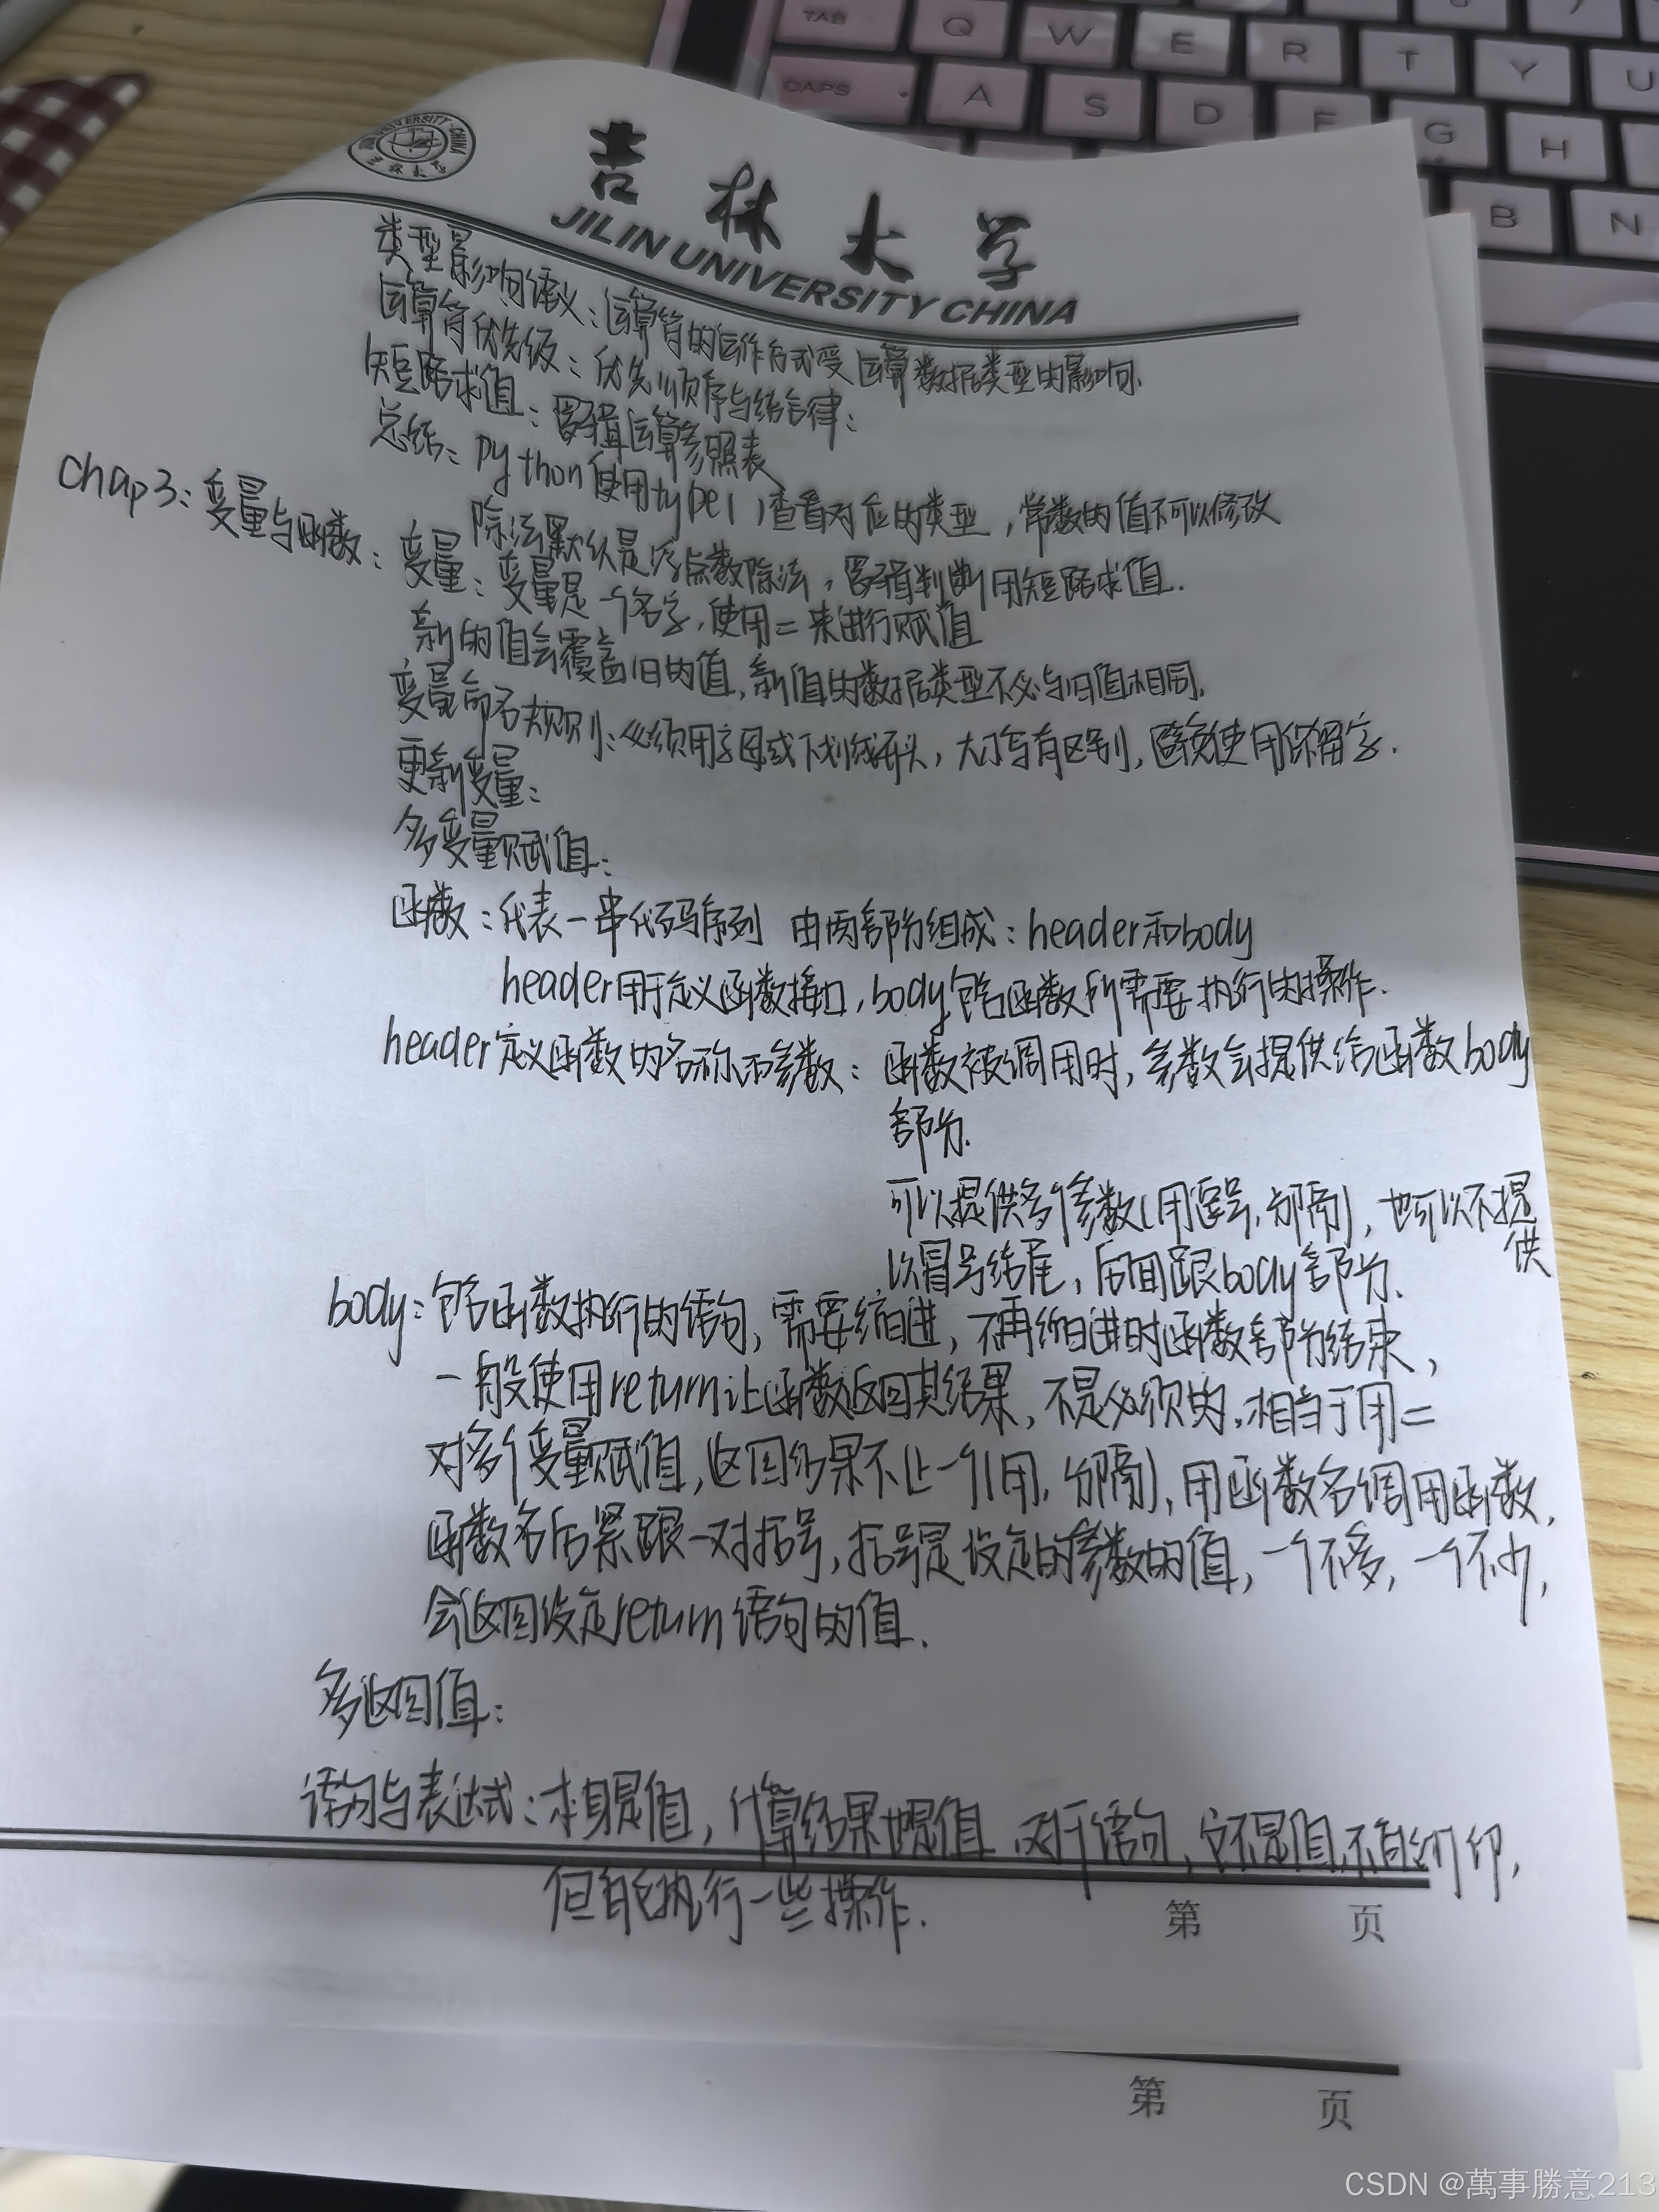 TAB Q W E R T Y U
CAPS A S D F G H
B N
吉林大学
JILIN UNIVERSITY CHINA
类型影响语义：运算符的运作方式受运算数据类型的影响.
运算符优先级：优先顺序与结合律：
短路求值：逻辑运算参照表
总结：python使用type()查看对应的类型，常数的值不可以修改
除法默认是浮点数除法，逻辑判断用短路求值.
chap3：变量与函数：变量：变量是一个名字，使用=来进行赋值
新的值会覆盖旧的值，新值的数据类型不必与旧值相同.
变量命名规则：必须用字母或下划线开头，大小写有区别，避免使用保留字.
更新变量：
多变量赋值：
函数：代表一串代码序列 由两部分组成：header和body
header用于定义函数接口，body包含函数所需要执行的操作.
header定义函数的名称和参数：函数被调用时，参数会提供给函数body
部分.
可以提供多个参数(用逗号,分隔)，也可以不提供
以冒号结尾，后面跟body部分.
body：包含函数执行的语句，需要缩进，不再缩进时函数部分结束，
一般使用return让函数返回其结果，不是必须的，相当于用=
对多个变量赋值，返回结果不止一个(用,分隔)，用函数名调用函数，
函数名后紧跟一对括号，括号是设定的参数的值，一个不多，一个不少，
会返回设定return语句的值.
多返回值：
语句与表达式：本身是值，计算结果也是值 对于语句，它不是值，不能打印，
但能执行一些操作.
第 页
第 页
CSDN @萬事勝意213